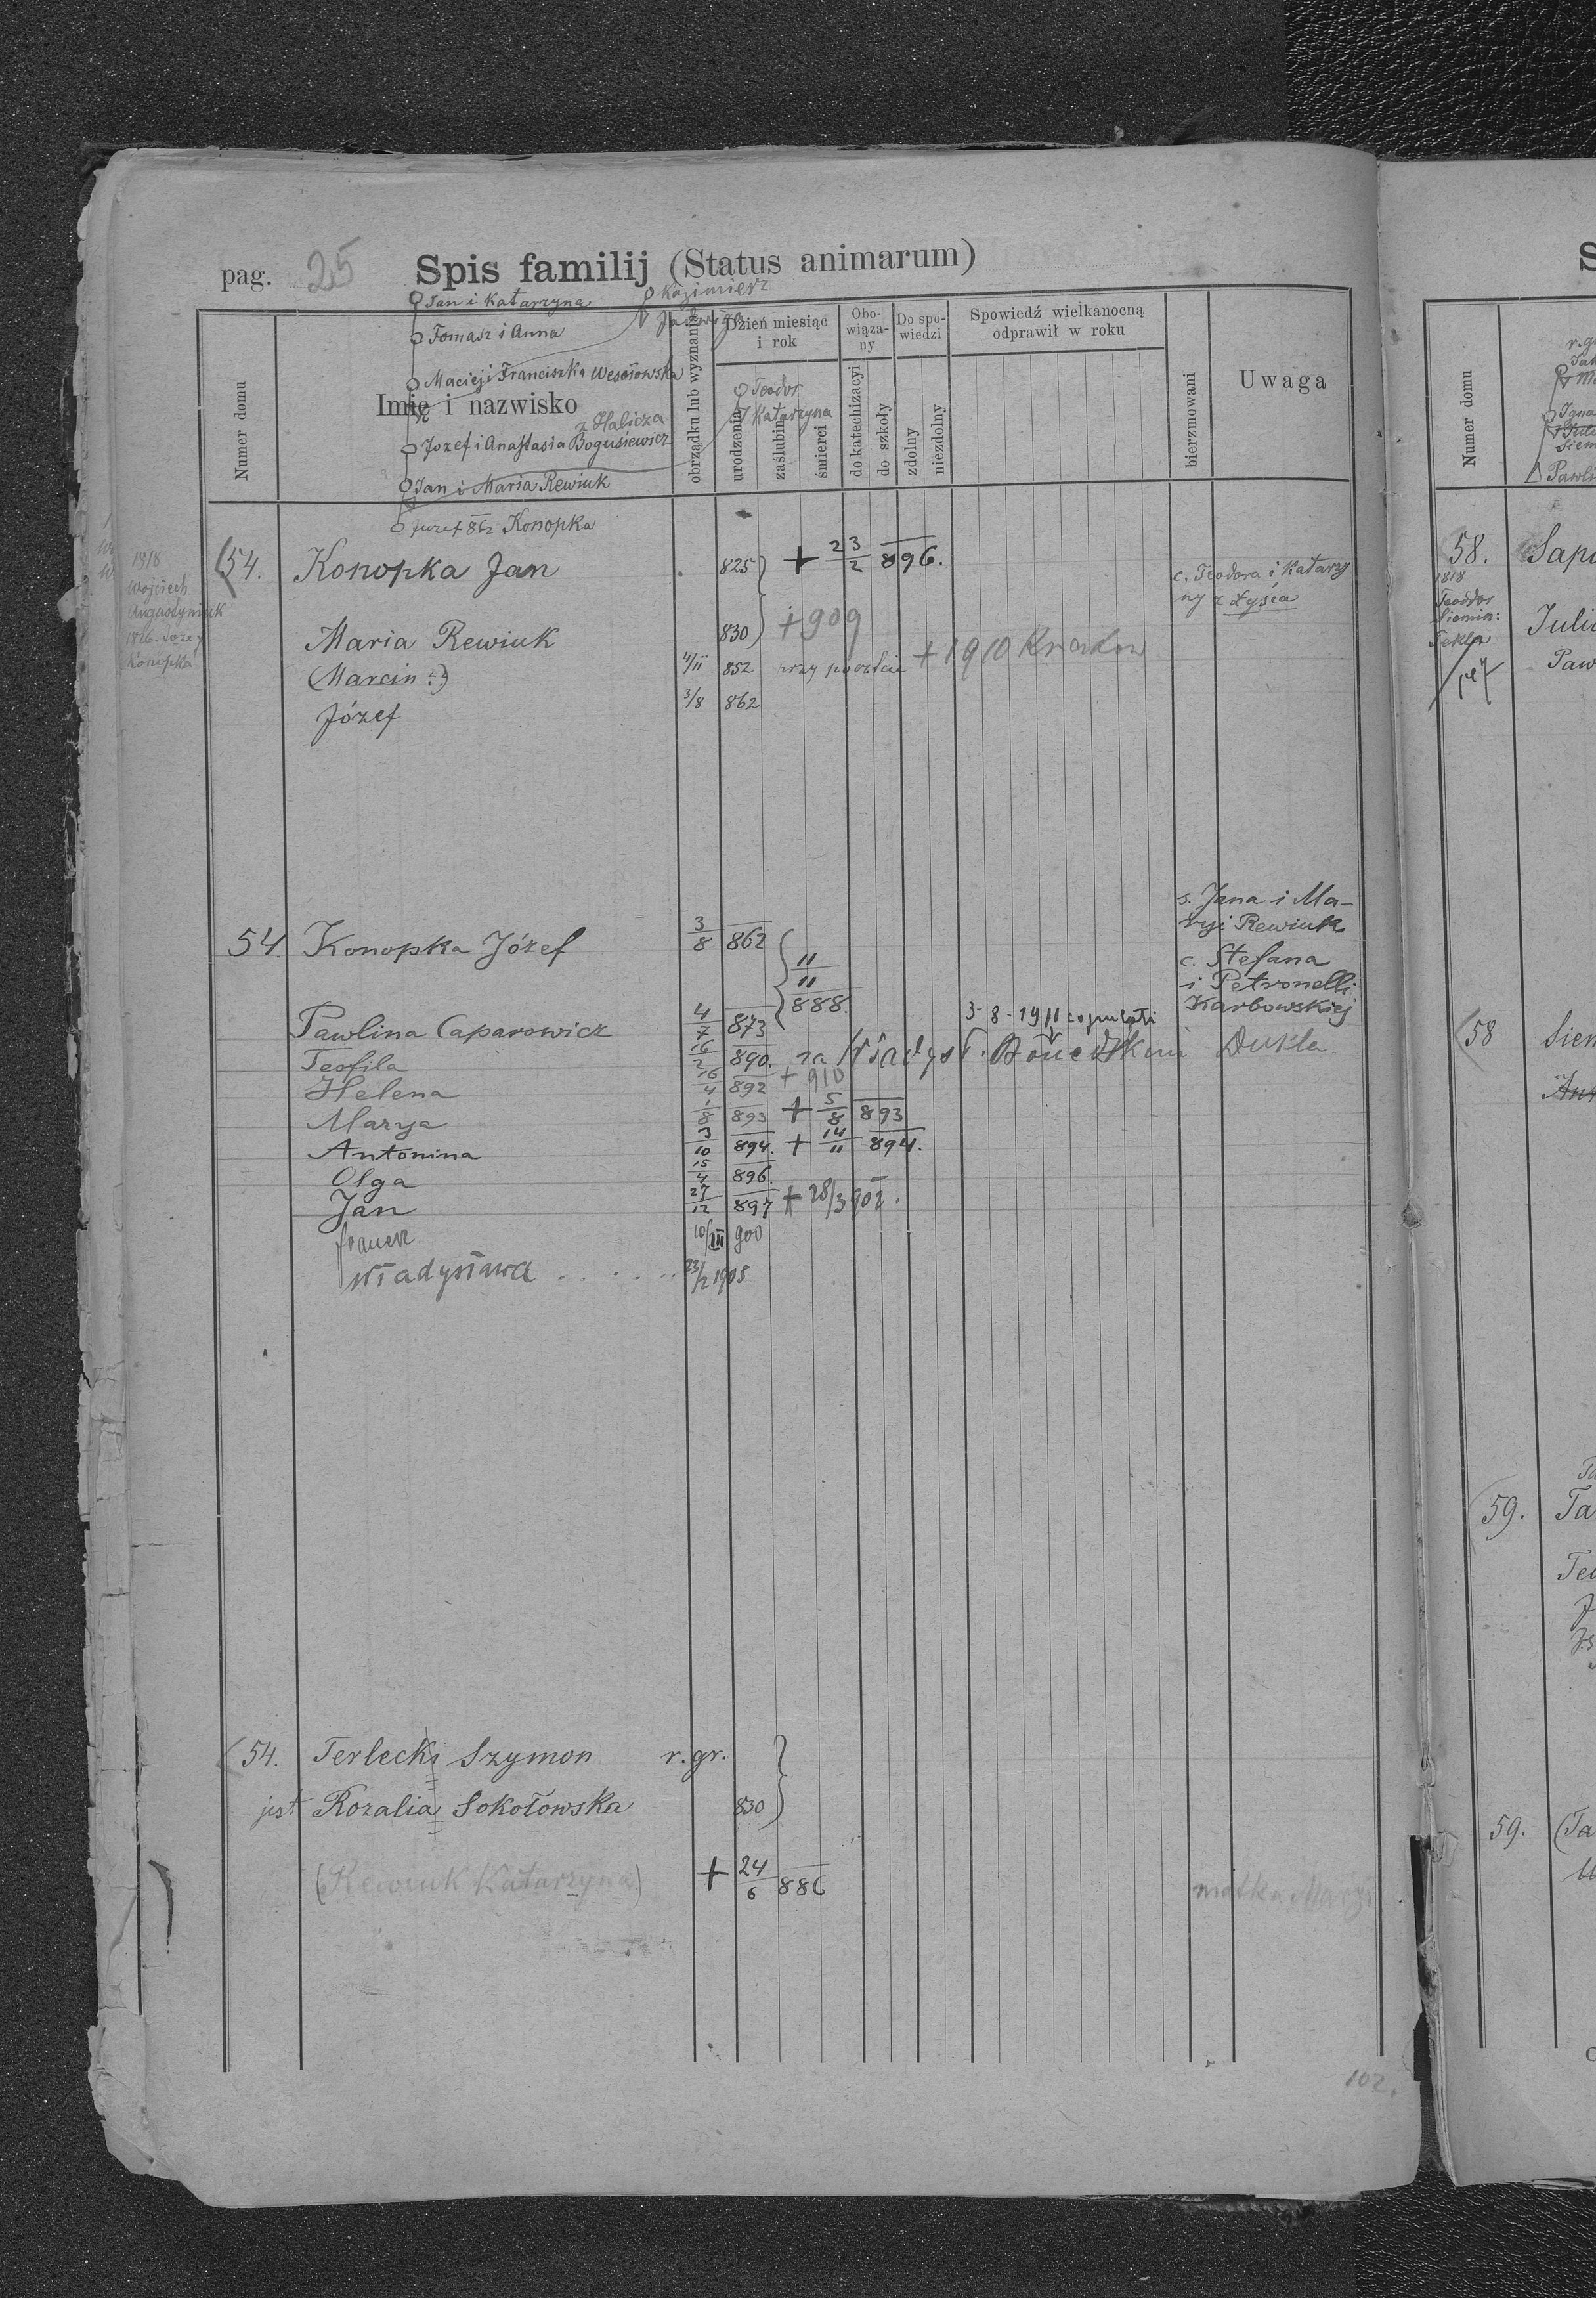 pag. 25 Spis familij (Status animarum)
Jan i Katarzyna
Kazimierz
Jadwiga
Tomasz i Anna
Maciej i Franciszka Wesołowska
z Halicza
Jozef i Anastasia Bogusiewicz
Jan i Maria Rewiuk
Jozef 862 Konopka
Teodor
Katarzyna
Numer domu
Imię i nazwisko
obrządku lub wyznania
Dzień miesiąc i rok
urodzenia
zaślubin
śmierci
Obowiązany
do katechizacyi
do szkoły
Do spowiedzi
zdolny
niezdolny
Spowiedź wielkanocną odprawił w roku
bierzmowani
Uwaga
1818
Wojciech
Augustyniuk
1826. Jozef
Konopka
54. Konopka Jan 825 + 23/2 896. c. Teodora i Katarzy
ny z Łyśca
Maria Rewiuk 830 +909
(Marcin) 4/II 852 przy + 1910 Krakow
Józef 3/8 862
54. Konopka Józef 3/8 862 s. Jana i Ma-
ryi Rewiuk
11/11 888. c. Stefana
i Petronelli
Karbowskiej
Pawlina Caparowicz 4/7 873 3-8-1911 copulati
Teofila 16/2 890. za Władysł. Dukla
Helena 16/4 892 + 910
Marya 1/8 893 + 5/8 893
Antonina 3/10 894. + 14/11 894.
Olga 15/4 896.
Jan 27/12 897 + 28/3 902.
10/III 900
Władysława 23/2 1905
54. Terlecki Szymon r. gr.
jest Rozalia Sokołowska 830
(Rewiuk Katarzyna) + 24/6 886 matka Maryi
102.
Numer domu
58.
1818
Teodor
Siemin:
Tekla
58
59.
59.